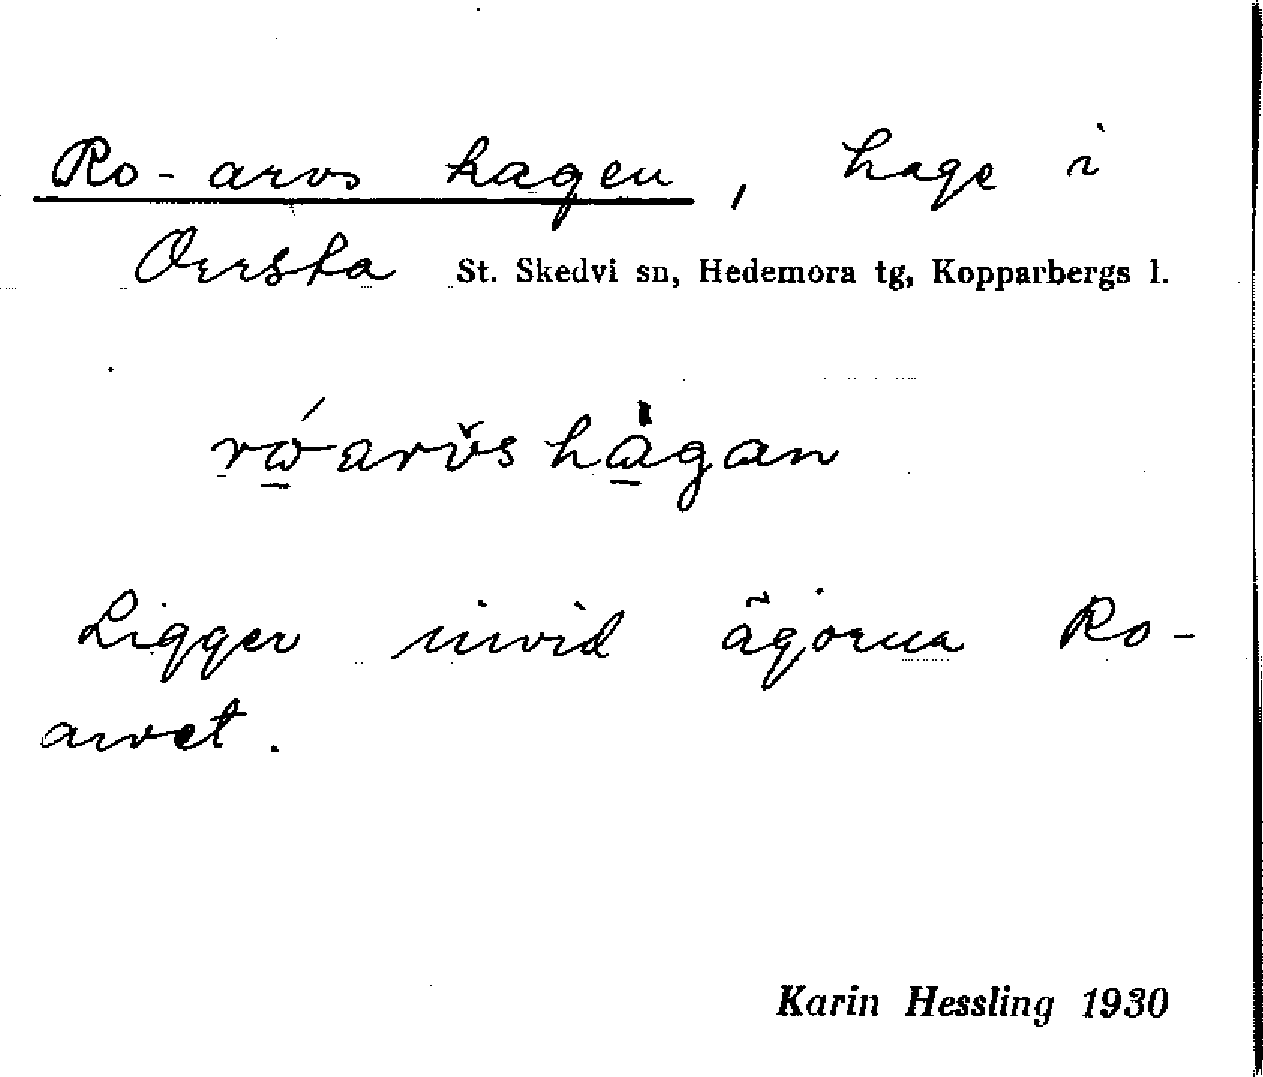 Ro-arvs hagen, hage i
Orrsta St. Skedvi sn, Hedemora tg, Kopparbergs l.
rώarv̆s hàgan
Ligger invid ägorna Ro-
arvet.
Karin Hessling 1930